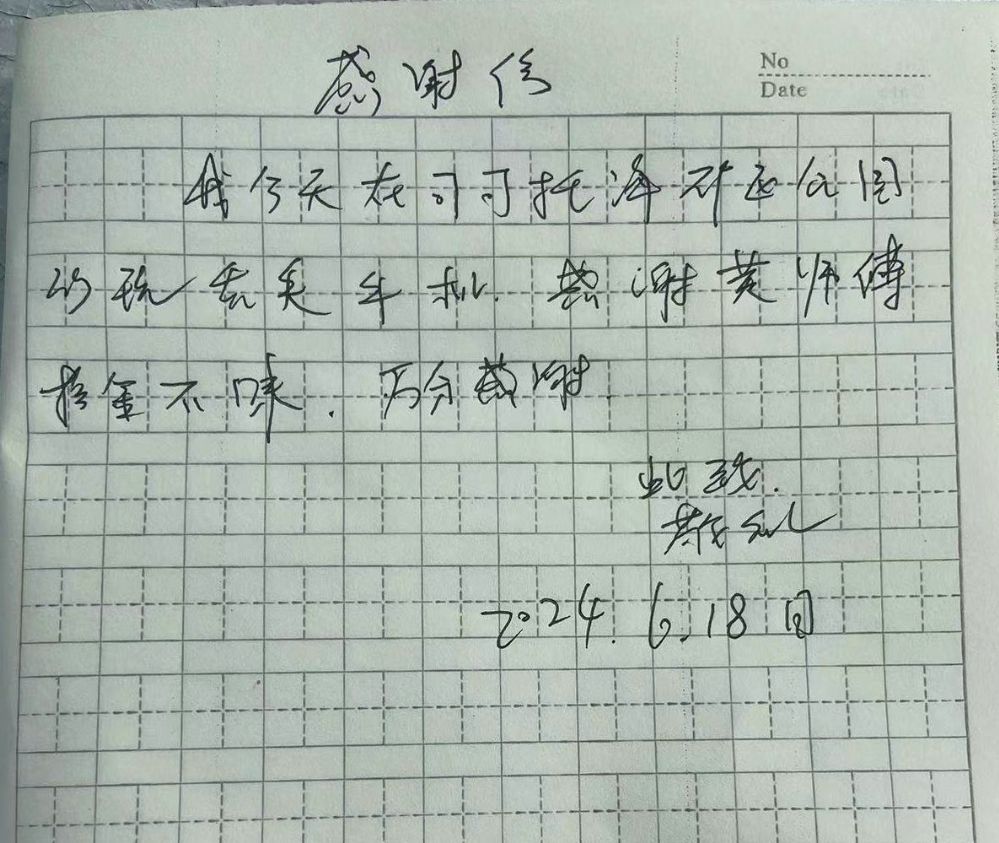 感谢信
No
Date
我今天在可可托海矿区公园
游玩丢失手机.感谢黄师傅
拾金不昧.万分感谢.
此致.
敬礼
2024.6.18日